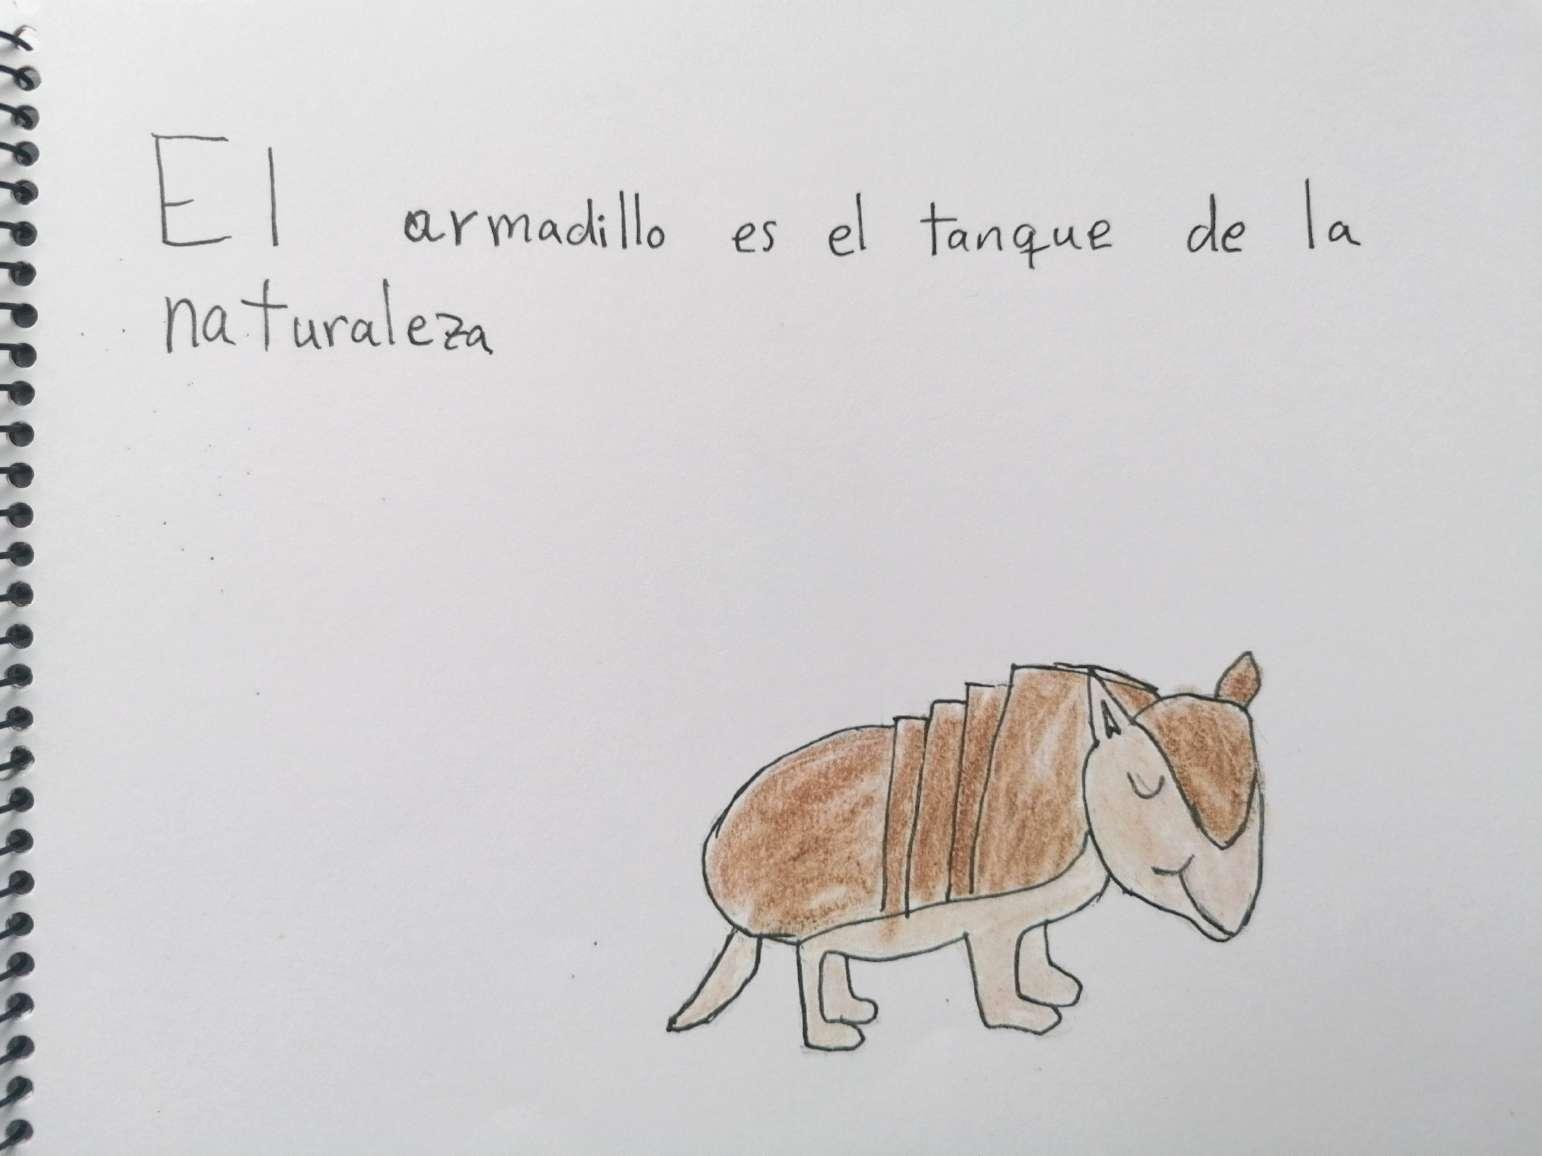 El armadillo es el tanque de la
naturaleza